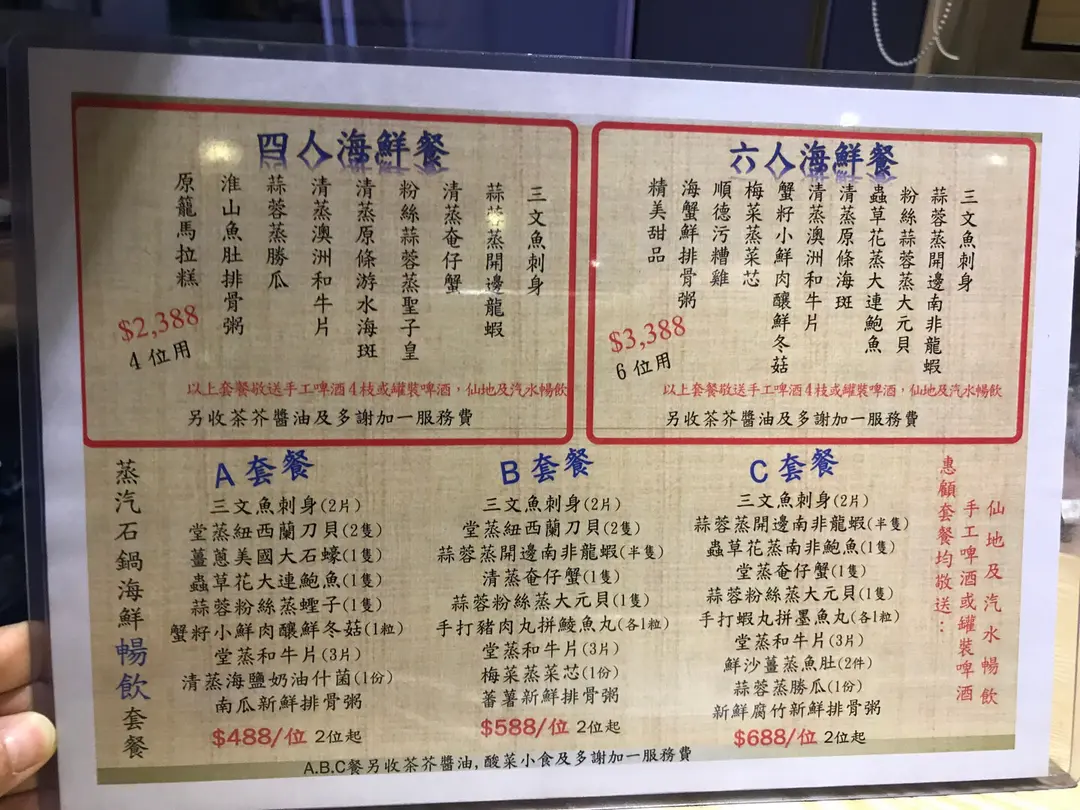 四人海鮮餐
三文魚刺身
蒜蓉蒸開邊龍蝦
清蒸奄仔蟹
粉絲蒜蓉蒸聖子皇
清蒸原條游水海斑
清蒸澳洲和牛片
蒜蓉蒸勝瓜
淮山魚肚排骨粥
原籠馬拉糕
$2,388
4位用
以上套餐敬送手工啤酒4枝或罐裝啤酒，仙地及汽水暢飲
另收茶芥醬油及多謝加一服務費
六人海鮮餐
三文魚刺身
蒜蓉蒸開邊南非龍蝦
粉絲蒜蓉蒸大元貝
蟲草花蒸大連鮑魚
清蒸原條海斑
清蒸澳洲和牛片
蟹籽小鮮肉釀鮮冬菇
梅菜蒸菜芯
順德污糟雞
海蟹鮮排骨粥
精美甜品
$3,388
6位用
以上套餐敬送手工啤酒4枝或罐裝啤酒，仙地及汽水暢飲
另收茶芥醬油及多謝加一服務費
蒸汽石鍋海鮮暢飲套餐
A套餐
三文魚刺身(2片)
堂蒸紐西蘭刀貝(2隻)
薑蔥美國大石蠔(1隻)
蟲草花大連鮑魚(1隻)
蒜蓉粉絲蒸蟶子(1隻)
蟹籽小鮮肉釀鮮冬菇(1粒)
堂蒸和牛片(3片)
清蒸海鹽奶油什菌(1份)
南瓜新鮮排骨粥
$488/位 2位起
B套餐
三文魚刺身(2片)
堂蒸紐西蘭刀貝(2隻)
蒜蓉蒸開邊南非龍蝦(半隻)
清蒸奄仔蟹(1隻)
蒜蓉粉絲蒸大元貝(1隻)
手打豬肉丸拼鯪魚丸(各1粒)
堂蒸和牛片(3片)
梅菜蒸菜芯(1份)
蕃薯新鮮排骨粥
$588/位 2位起
C套餐
三文魚刺身(2片)
蒜蓉蒸開邊南非龍蝦(半隻)
蟲草花蒸南非鮑魚(1隻)
堂蒸奄仔蟹(1隻)
蒜蓉粉絲蒸大元貝(1隻)
手打蝦丸拼墨魚丸(各1粒)
堂蒸和牛片(3片)
鮮沙薑蒸魚肚(2件)
蒜蓉蒸勝瓜(1份)
新鮮腐竹新鮮排骨粥
$688/位 2位起
仙地及汽水暢飲
手工啤酒或罐裝啤酒
惠顧套餐均敬送：
A.B.C餐另收茶芥醬油,酸菜小食及多謝加一服務費